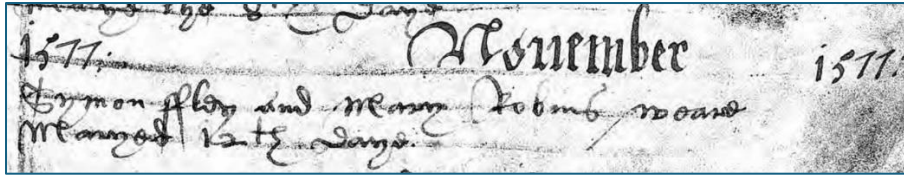 the 8th Daye
1577. November 1577.
Symon Ffley and Mary Robins weare
Maryed 12th Daye.